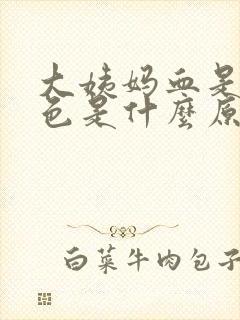 大姨妈血是
色是什麼原
白菜牛肉包子